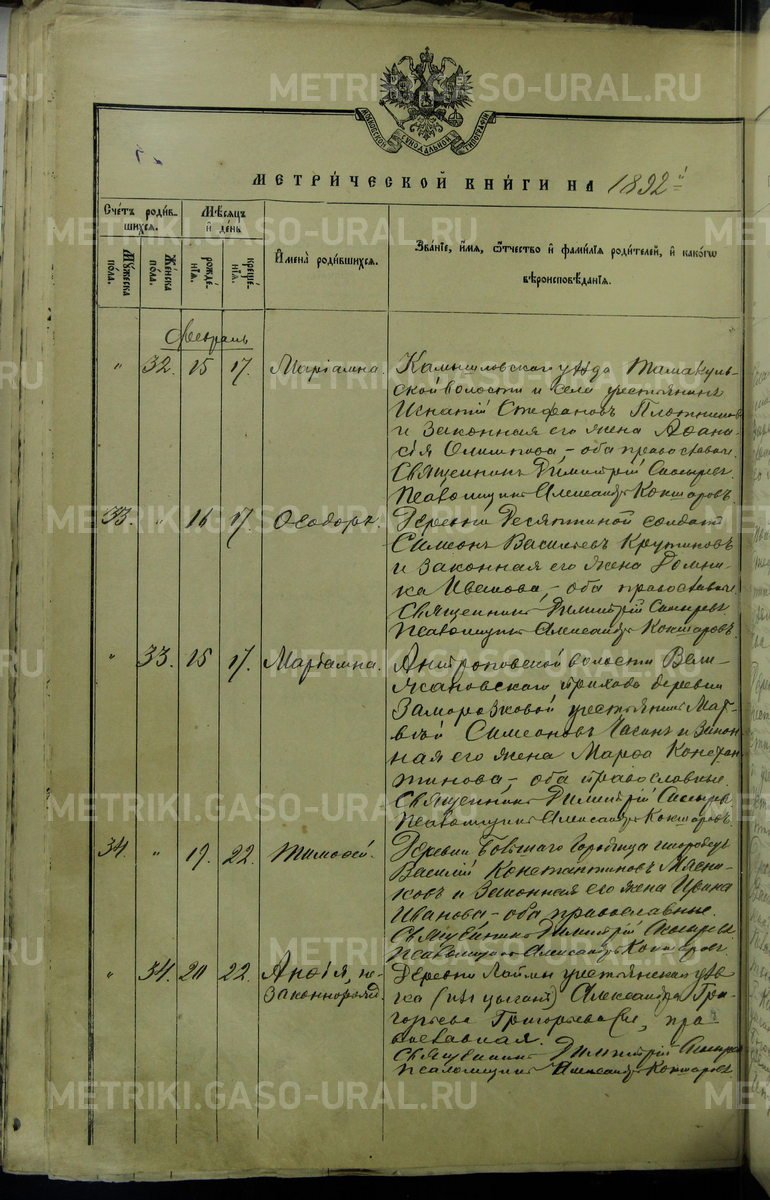 METRIKI.GASO-URAL.RU
МОСКОВСКОЙ СѴНОДАЛЬНОЙ ТИПОГРАФІИ
МЕТРИ́ЧЕСКОЙ КНИ́ГИ НА 1892 й
Сче́тъ роди́вшихся.
Мꙋ́жеска по́ла.
Же́нска по́ла.
Мѣ́сѧцъ и҆ де́нь
рожде́нїѧ.
креще́нїѧ.
И҆мена̀ роди́вшихсѧ.
Зва́нїе, и҆́мѧ, ѻ҆́тчество и҆ фами́лїѧ роди́телей, и҆ како́гѡ
вѣроисповѣ́данїѧ.
Февраль
" 32. 15 17. Маріамна. Камышловскаго уѣзда Тамакуль-
ской волости и села крестьянинъ
Игнатій Стефановъ Плотниковъ
и законная его жена Аѳана-
сія – оба православные
Священникъ Димитрій
Псаломщикъ Александръ Кокшаровъ.
33. " 16 17. Ѳеодоръ. Деревни Десятиной солдатъ
Симеонъ Васильевъ Крутиковъ
и законная его жена Домни-
ка Иванова, – оба православные
Священникъ Димитрій
Псаломщикъ Александръ Кокшаровъ.
" 33. 15 17. Маріамна. Антроповской волости
прихода деревни
Заморозковой крестьянинъ Мат-
вѣй Симеоновъ и закон-
ная его жена Марѳа Констан-
тинова, – оба православные
Священникъ Димитрій
Псаломщикъ Александръ Кокшаровъ.
34. " 19. 22. Тимоѳей. Деревни
Василій Константиновъ Мясни-
ковъ и законная его жена Ирина
Иванова – оба православные.
Священникъ Димитрій
Псаломщикъ Александръ Кокшаровъ.
" 34. 20 22. Анѳія, не-
законнорожд. Деревни крестьянская дѣв-
ка (изъ цыганъ) Александра Гри-
горьева Григорьева, пра-
вославная.
Священникъ Димитрій
Псаломщикъ Александръ Кокшаровъ